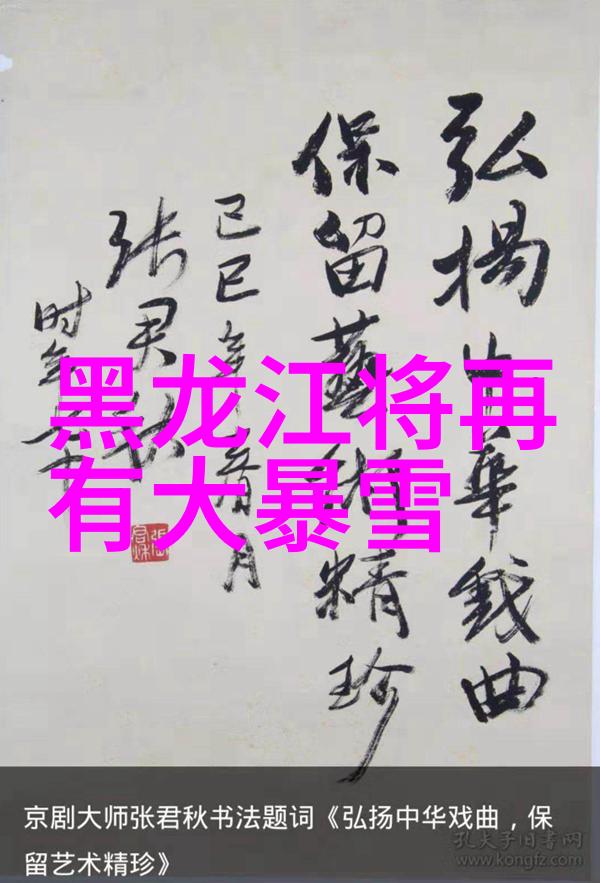 弘揚中華戏曲
保留藝術精珍
己巳年 月
张君秋
时年七十
黑龙江将再
有大暴雪
京剧大师张君秋书法题词《弘扬中华戏曲，保
留艺术精珍》
孔夫子旧书网
www.kongfz.com